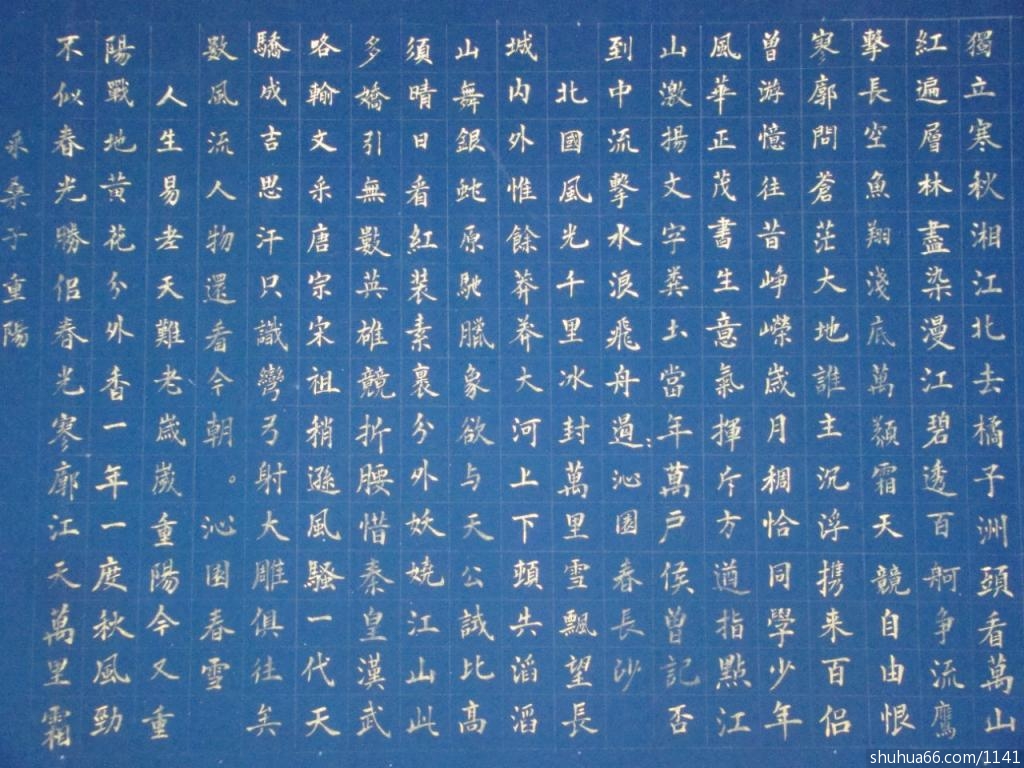 獨立寒秋湘江北去橘子洲頭看萬山
紅遍層林盡染漫江碧透百舸争流鷹
擊長空魚翔淺底萬類霜天競自由恨
寥廓問蒼茫大地誰主沉浮携来百侣
曾游憶往昔峥嶸歲月稠恰同學少年
風華正茂書生意氣揮斥方遒指點江
山激揚文字粪土當年萬户侯曾記否
到中流擊水浪飛舟遏；沁園春長沙
北國風光千里冰封萬里雪飄望長
城内外惟餘莽莽大河上下頓失滔滔
山舞銀蛇原馳臘象欲与天公試比高
須晴日看紅装素裹分外妖嬈江山此
多嬌引無數英雄競折腰惜秦皇漢武
咯輸文采唐宗宋祖稍遜風騷一代天
驕成吉思汗只識彎弓射大雕俱往矣
數風流人物還看今朝。沁園春雪
人生易老天難老歲歲重陽今又重
陽戰地黄花分外香一年一度秋風勁
不似春光勝侣春光寥廓江天萬里霜
采桑子重陽
shuhua66.com/1141